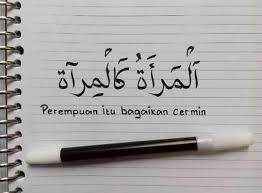 اَلْمَرأَةُ كَالْمِرآة
Perempuan itu bagaikan cermin